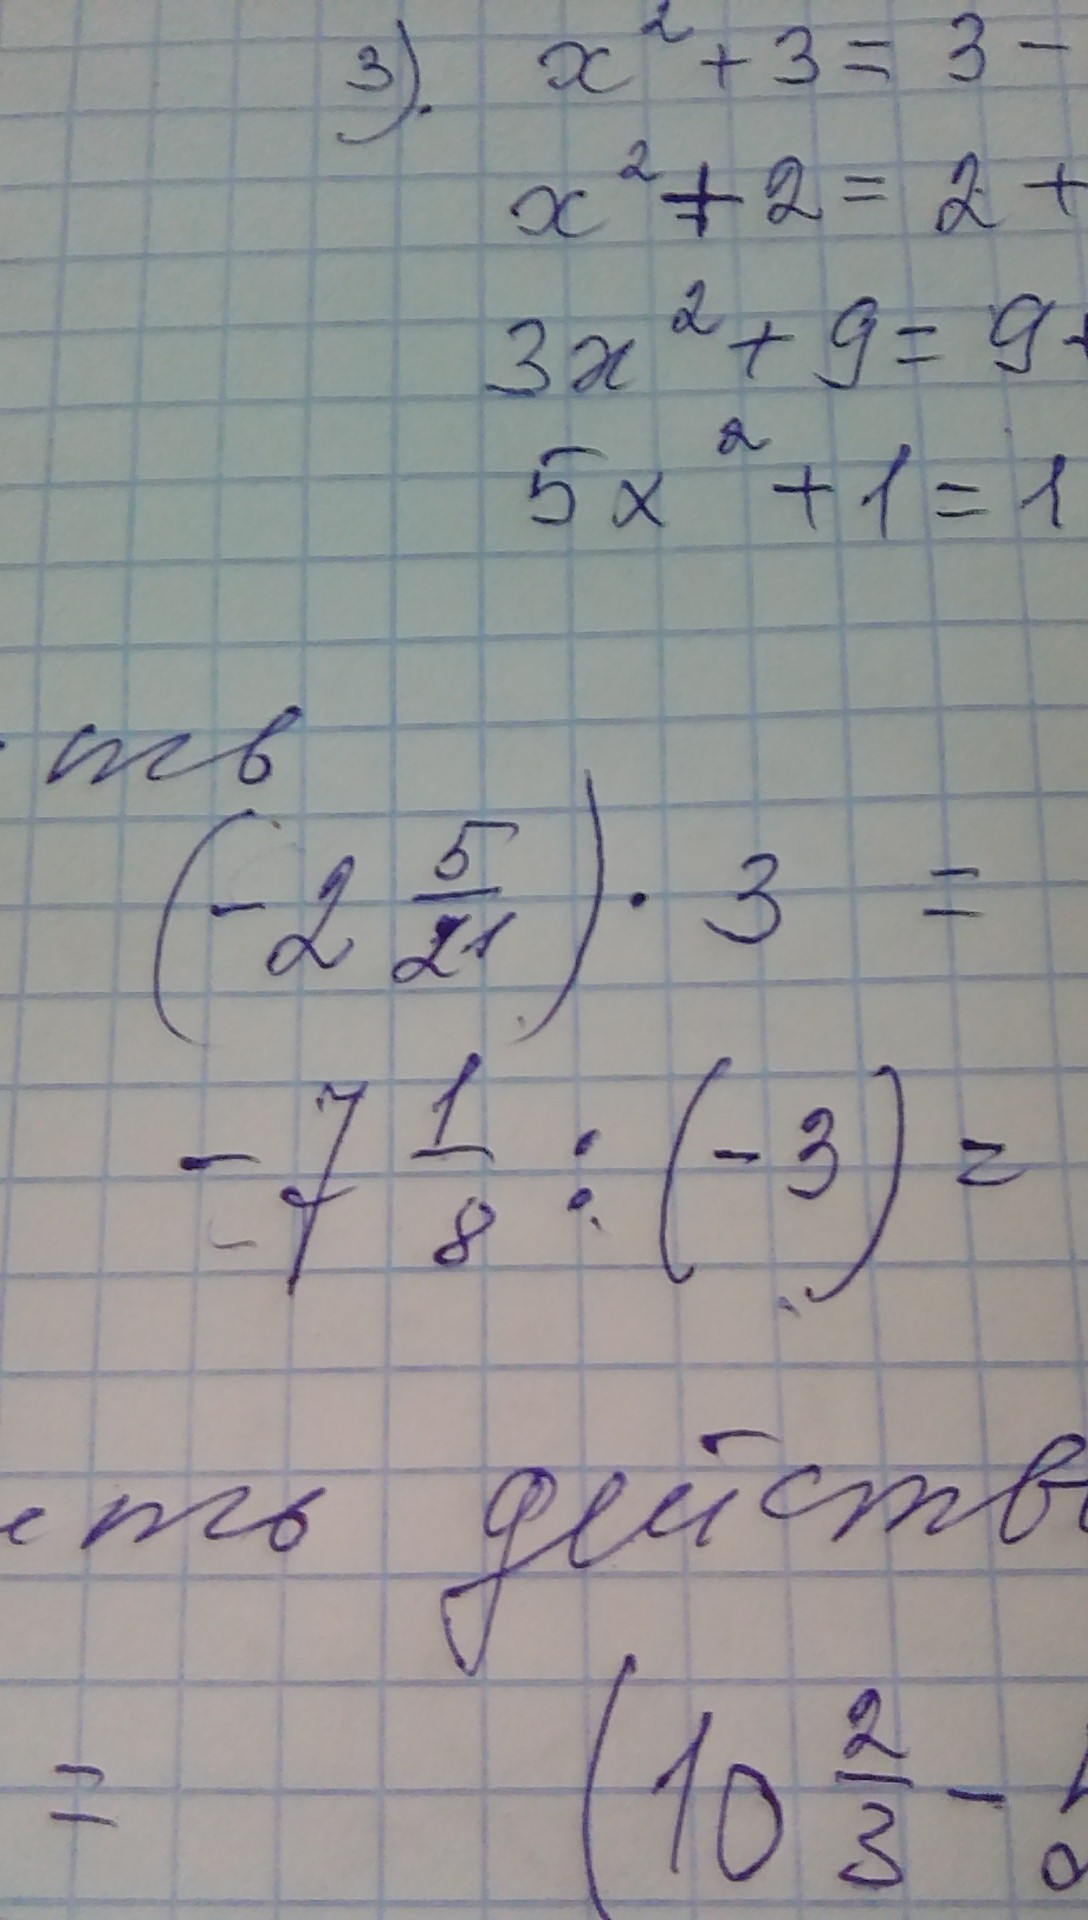 3). x² + 3 = 3 -
x² + 2 = 2 +
3x² + 9 = 9
5x² + 1 = 1
ть
(-2 5/21) · 3 =
-7 1/8 : (-3) =
ть действ
= (10 2/3 -